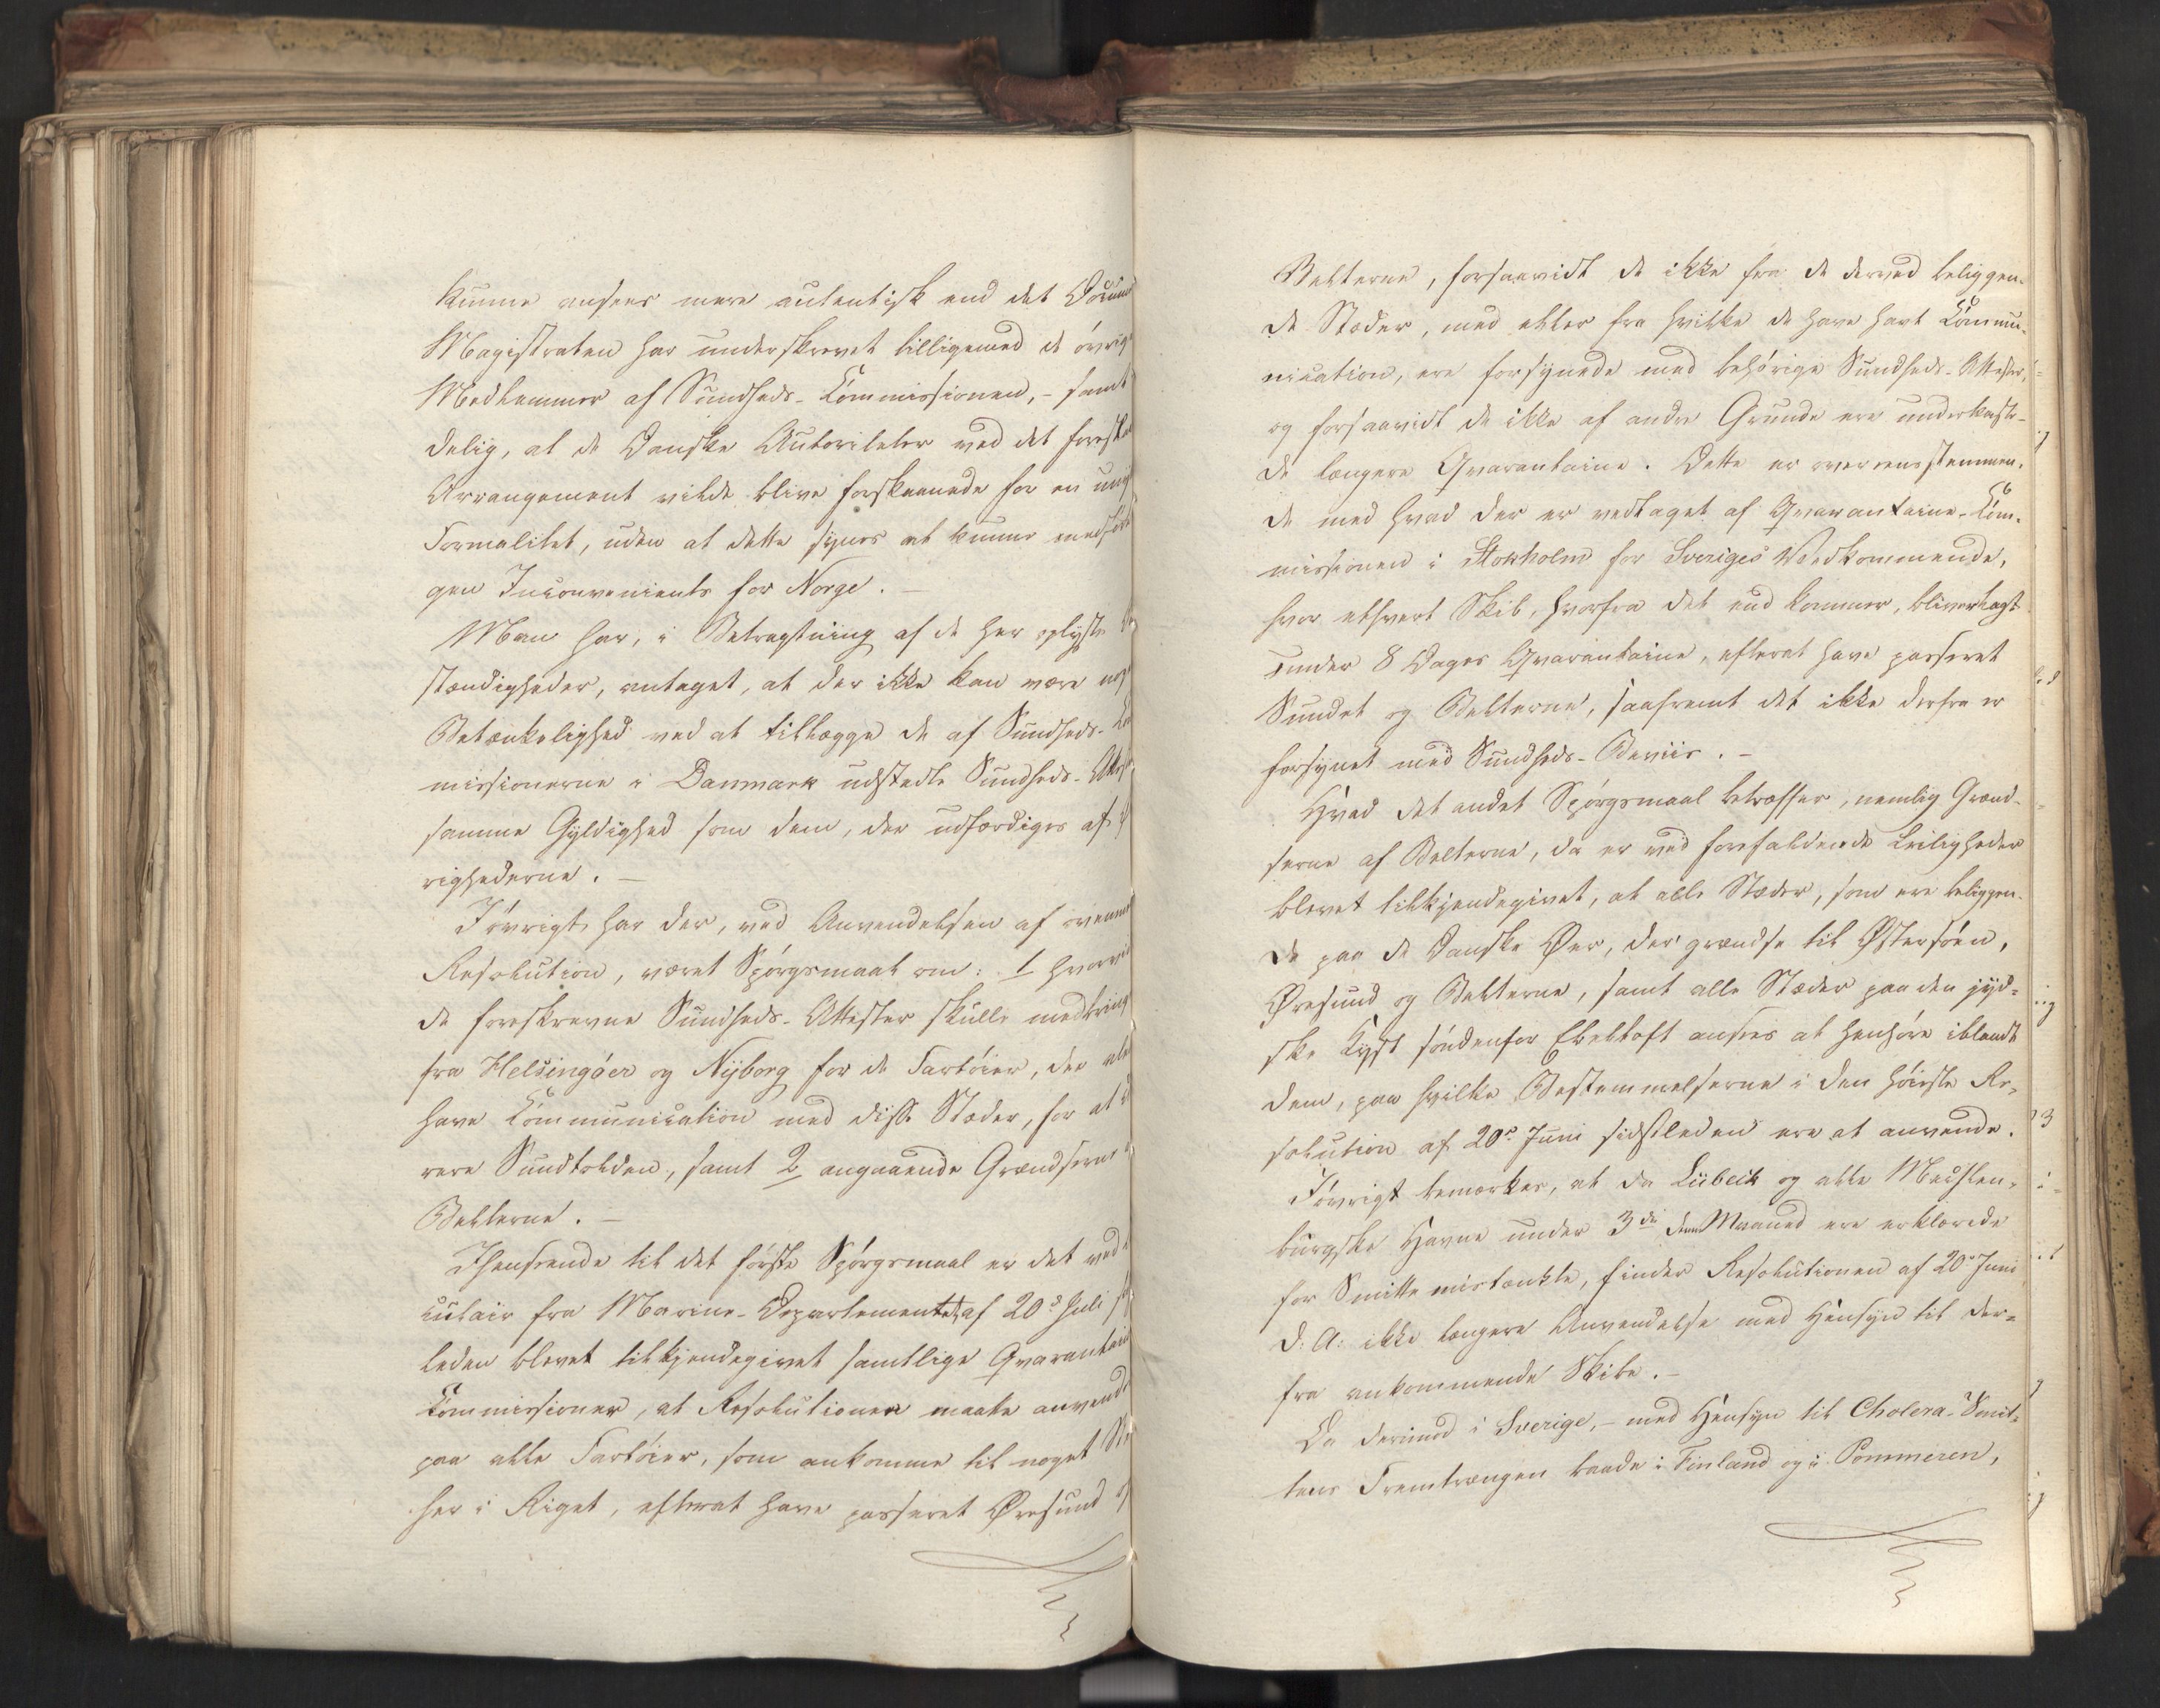 kunne ansees mere autentisk end det
Magistraten har underskrevet tilligemed de øvrig
Medlemmer af Sundheds-Commissionen, - samt
delig, at de Danske Autoriteter ved det
Arrangement vilde blive forskaanede for en
Formalitet, uden at dette synes at kunne medføre
gen Inconvenients for Norge. -
Man har, i Betragtning af de her oplyste
stændigheder, antaget, at der ikke kan være
Betænkelighed ved at tillægge de af Sundheds-
missionerne i Danmark udstedte Sundheds-
samme Gyldighed som dem, der udfærdiges af
righederne. -
Iøvrigt har der, ved Anvendelsen af
Resolution, været Spørgsmaal om: 1
de foreskrevne Sundheds-Attester skulle
fra Helsingöer og Nyborg for de Fartøier, der
have Communication med disse Stæder, for at
rere Sundtolden, samt 2 angaaende Grændserne
Belterne. -
Ihenseende til det første Spørgsmaal er det ved
culair fra Marine-Departementet af 20de Juli
leden blevet tilkjendegivet samtlige
Commissioner, at Resolutionen maatte
paa alle Fartøier, som ankomme til noget
her i Riget, efterat have passeret Øresund
Belterne, forsaavidt de ikke fra de derved beliggen-
de Stæder, med eller fra hvilke de have havt Commu-
nication, ere forsynede med behørige Sundheds-Attester,
og forsaavidt de ikke af andre Grunde ere underkaste-
de længere Qvarantaine. Dette er overeensstemmen-
de med hvad der er vedtaget af Qvarantaine-Com-
missionen i Stokholm for Sveriges Vedkommende,
hvor ethvert Skib, hvorfra det end kommer, bliver lagt
under 8 Dages Qvarantaine, efterat have passeret
Sundet og Belterne, saafremt det ikke derfra er
forsynet med Sundheds-Beviis. -
Hvad det andet Spørgsmaal betræffer, nemlig Grænd-
serne af Belterne, da er ved forefaldende Leiligheder
blevet tilkjendegivet, at alle Stæder, som ere beliggen-
de paa de Danske Øer, der grændse til Østersøen,
Øresund og Belterne, samt alle Stæder paa den jyd-
ske Kyst søndenfor Ebeltoft ansees at henhøre iblandt
dem, paa hvilke Bestemmelserne i den høieste Re-
solution af 20de Juni sidstleden ere at anvende.
Iøvrigt bemærkes, at da Lübeck og alle Mecklen-
burgske Havne under 3die dennes Maaned ere erklærede
for Smitte mistænkte, finder Resolutionen af 20de Juni
d: A: ikke længere Anvendelse med Hensyn til der-
fra ankommende Skibe. -
Da derimod i Sverige, - med Hensyn til Cholera-Smit-
tens Fremtrængen baade i Finland og i Pommeren,